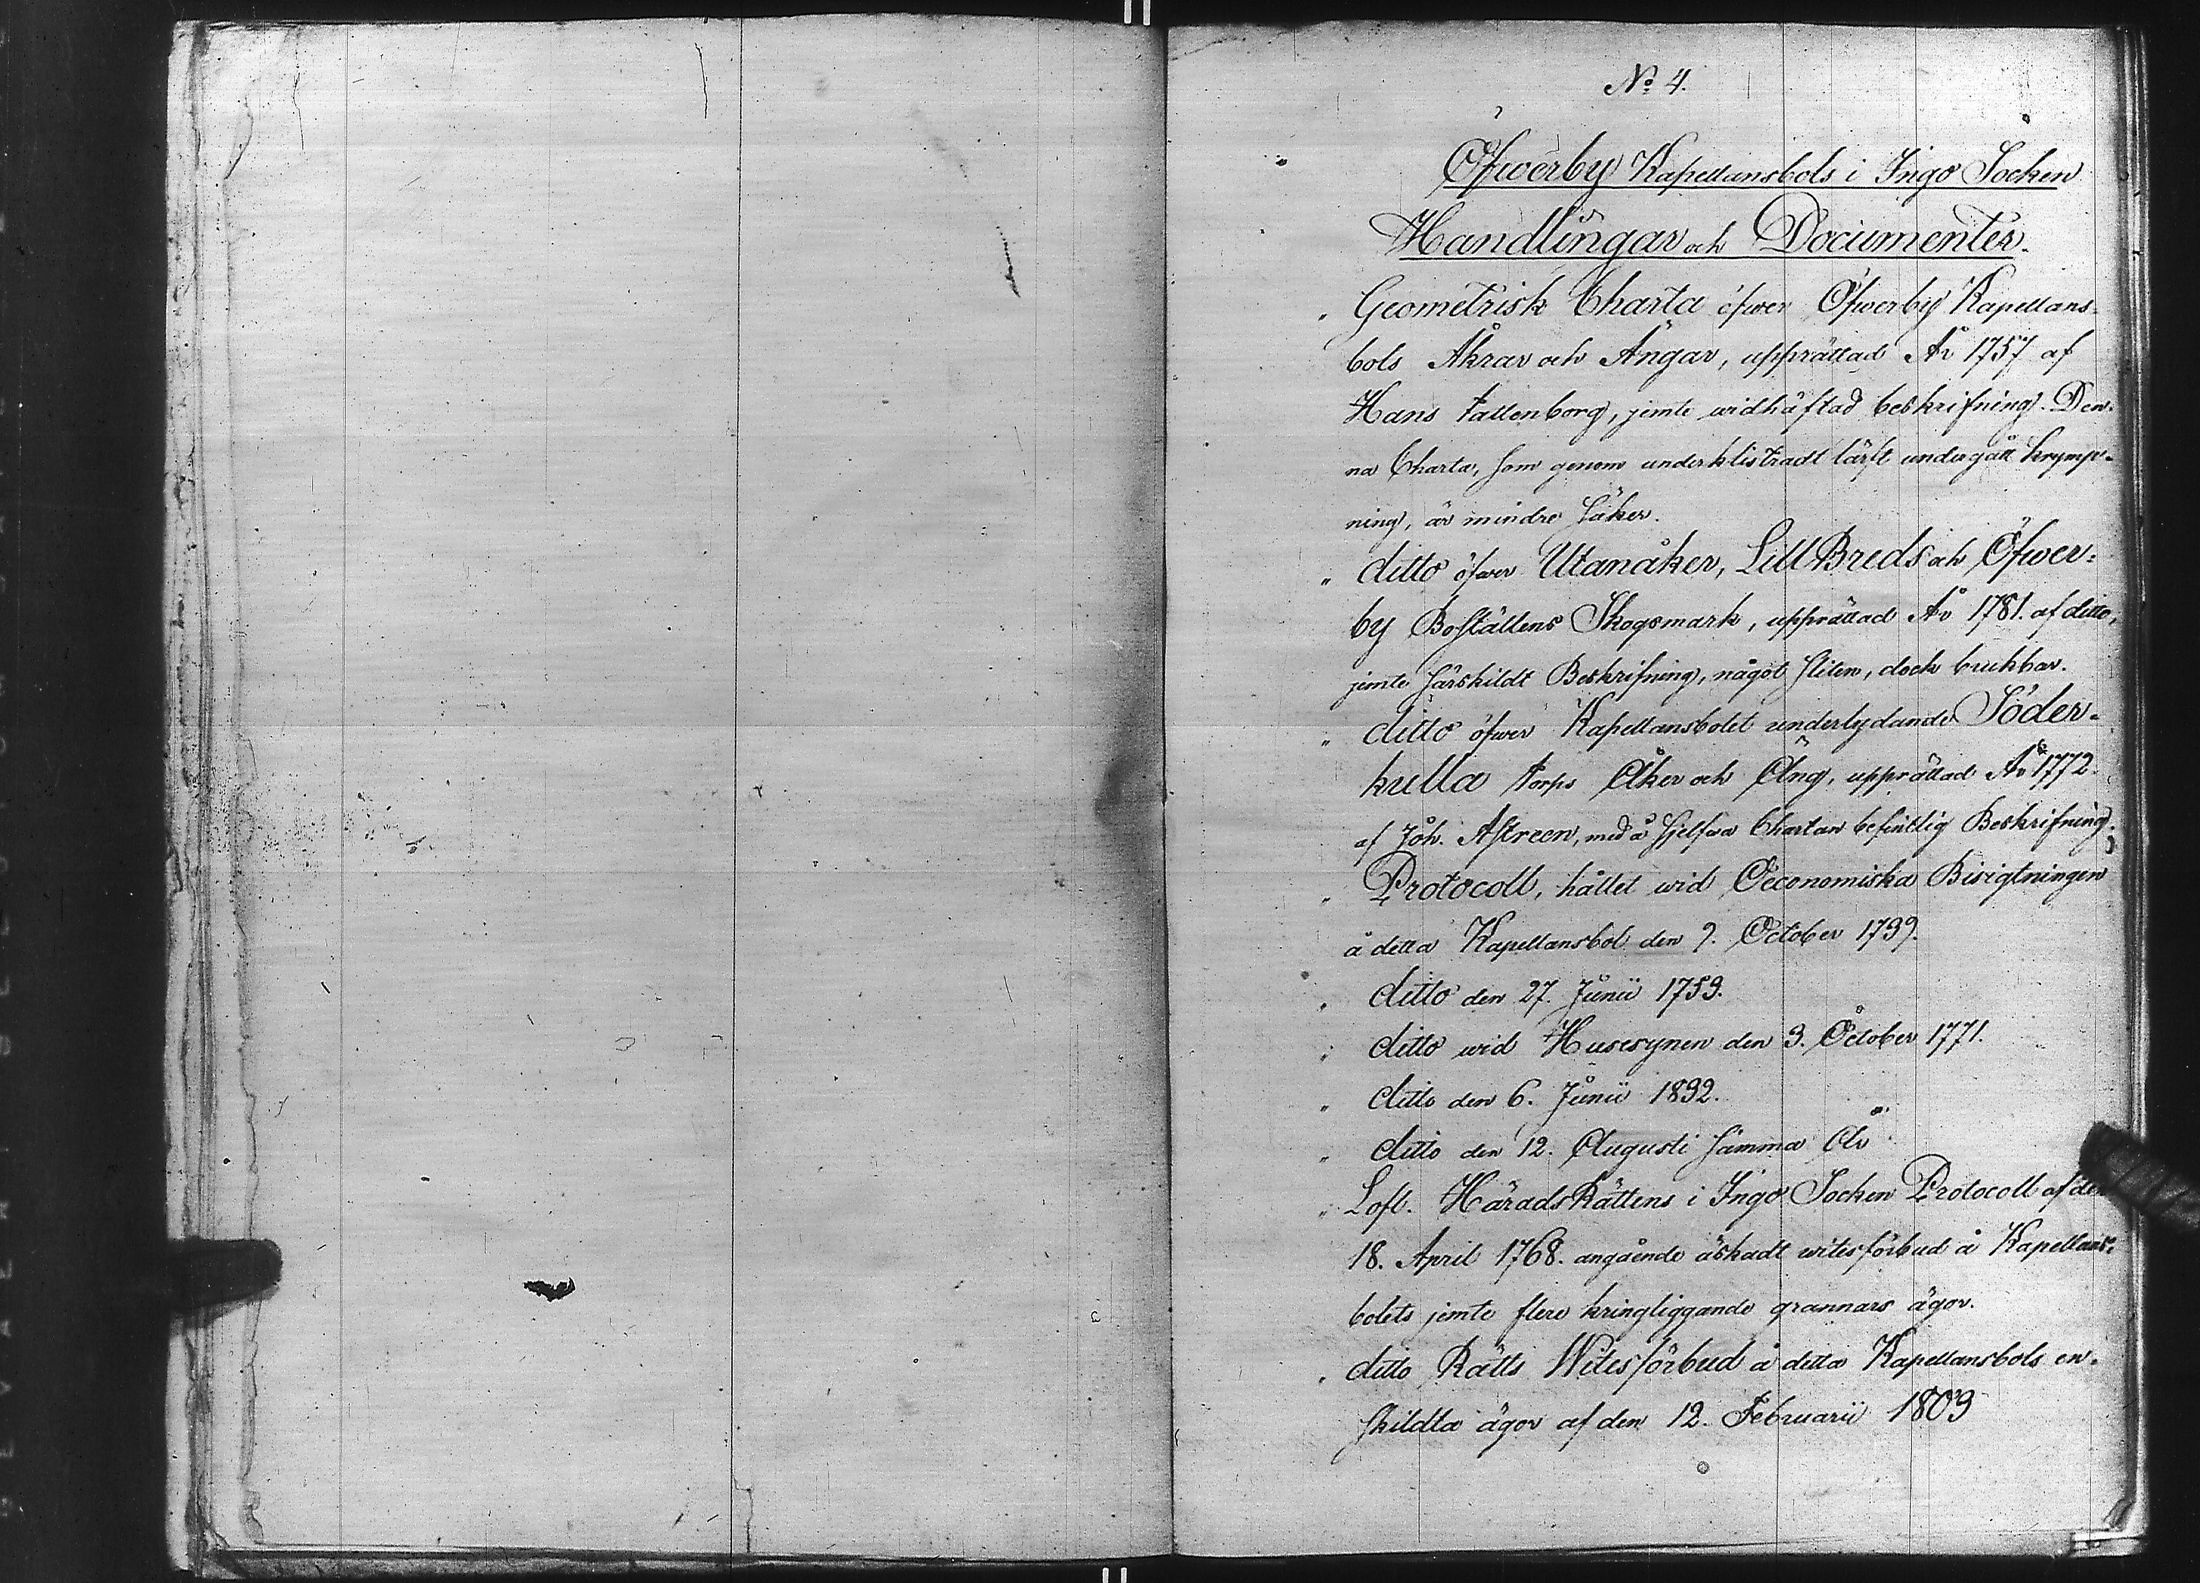 No 4.
Öfwerby Kapellansbols i Ingo Socken
Handlingar och Documenter.
„ Geometrisk Charta öfwer Öfwerby Kapellans-
bols Åkrar och Ängar, upprättad År 1757 af
Hans Tallenborg, jemte widhäftad beskrifning. Den-
na Charta, som genom underklistradt lärft undergått krymp-
ning, är mindre säker.
„ ditto öfwer Utanåker, LillBreds och Öfwer-
by Boställens Skogsmark, upprättad År 1781. af ditto,
jemte särskildt Beskrifning, något sliten, dock brukbar.
„ ditto öfwer Kapellansbolet underlydande Söder-
kulla torps Åker och Äng, upprättad År 1772.
af Joh. Astreen, med å sjelfwa Chartan befintlig Beskrifning.
„ Protocoll, hållet wid Oeconomiska Besigtningen
å detta Kapellansbol den 9. October 1739.
„ ditto den 27. Junii 1753.
„ ditto wid Husesynen den 3. October 1771.
„ ditto den 6. Junii 1832.
„ ditto den 12. Augusti samma År
„ Lofl. HäradsRättens i Ingo Socken Protocoll af den
18. April 1768. angående äskadt witesförbud å Kapellans-
bolets jemte flere kringliggande grannars ägor.
„ ditto Rätts Witesförbud å detta Kapellansbols en-
skildta ägor af den 12. Februarii 1803